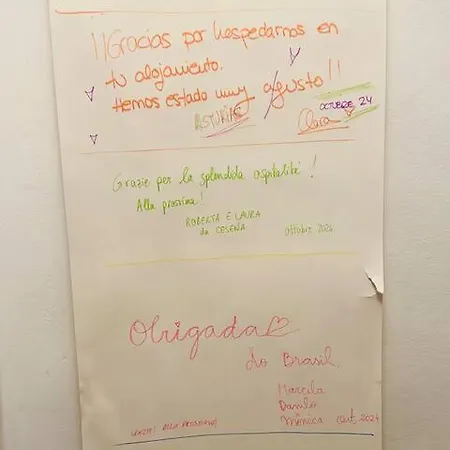 ¡¡Gracias por hospedarnos en
tu alojamiento.
Hemos estado muy agusto!!
ASTURIAS
OCTUBRE 24
Clara
Grazie per la splendida ospitalità!
Alla prossima!
ROBERTA E LAURA
da CESENA
ottobre 2024
Obrigada
do Brasil
Marcela
Danilo
Mônica out, 2024
GRAZIE! ALLA PROSSIMA!